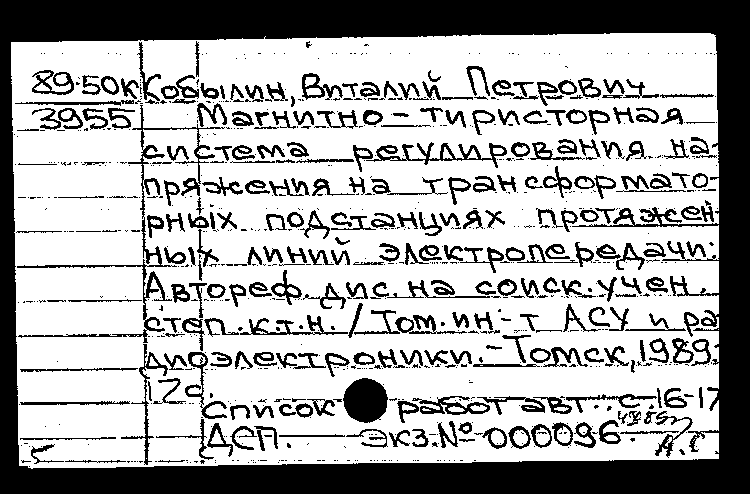 89-50к Кобылин, Виталий Петрович
3955 Магнитно-тиристорная
система регулирования на-
пряжения на трансформато-
рных подстанциях протяжен-
ных линий электропередачи:
Автореф. дис. на соиск. учен.
степ. к.т.н. / Том. ин-т АСУ и ра-
диоэлектроники. - Томск, 1989.
17 с.
Список работ авт.: с. 16-17
ДСП. Экз. № 000096.
А.С.
5